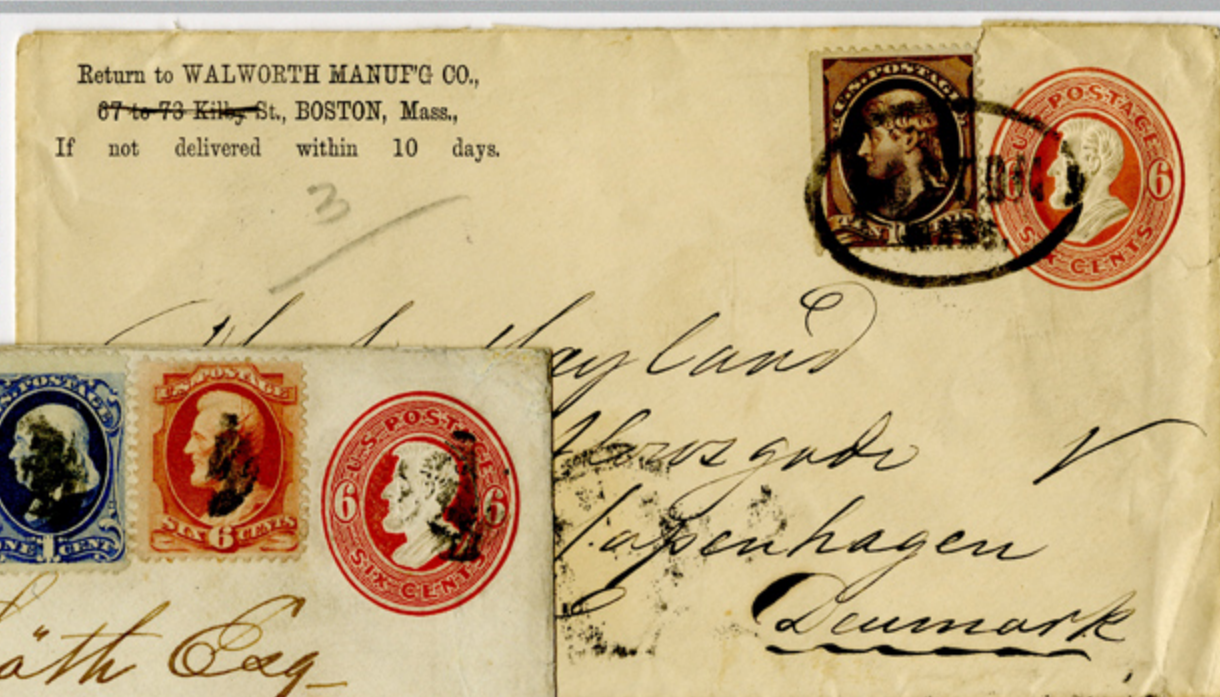 Return to WALWORTH MANUF'G CO.,
67 to 73 Kilby St., BOSTON, Mass.,
If not delivered within 10 days.
3
U.S. POSTAGE
TEN
U.S. POSTAGE
6 6
SIX CENTS
land
V
Copenhagen
Denmark
U.S. POSTAGE
ONE 1 CENT
U.S. POSTAGE
SIX 6 CENTS
U.S. POSTAGE
6 6
SIX CENTS
Esq